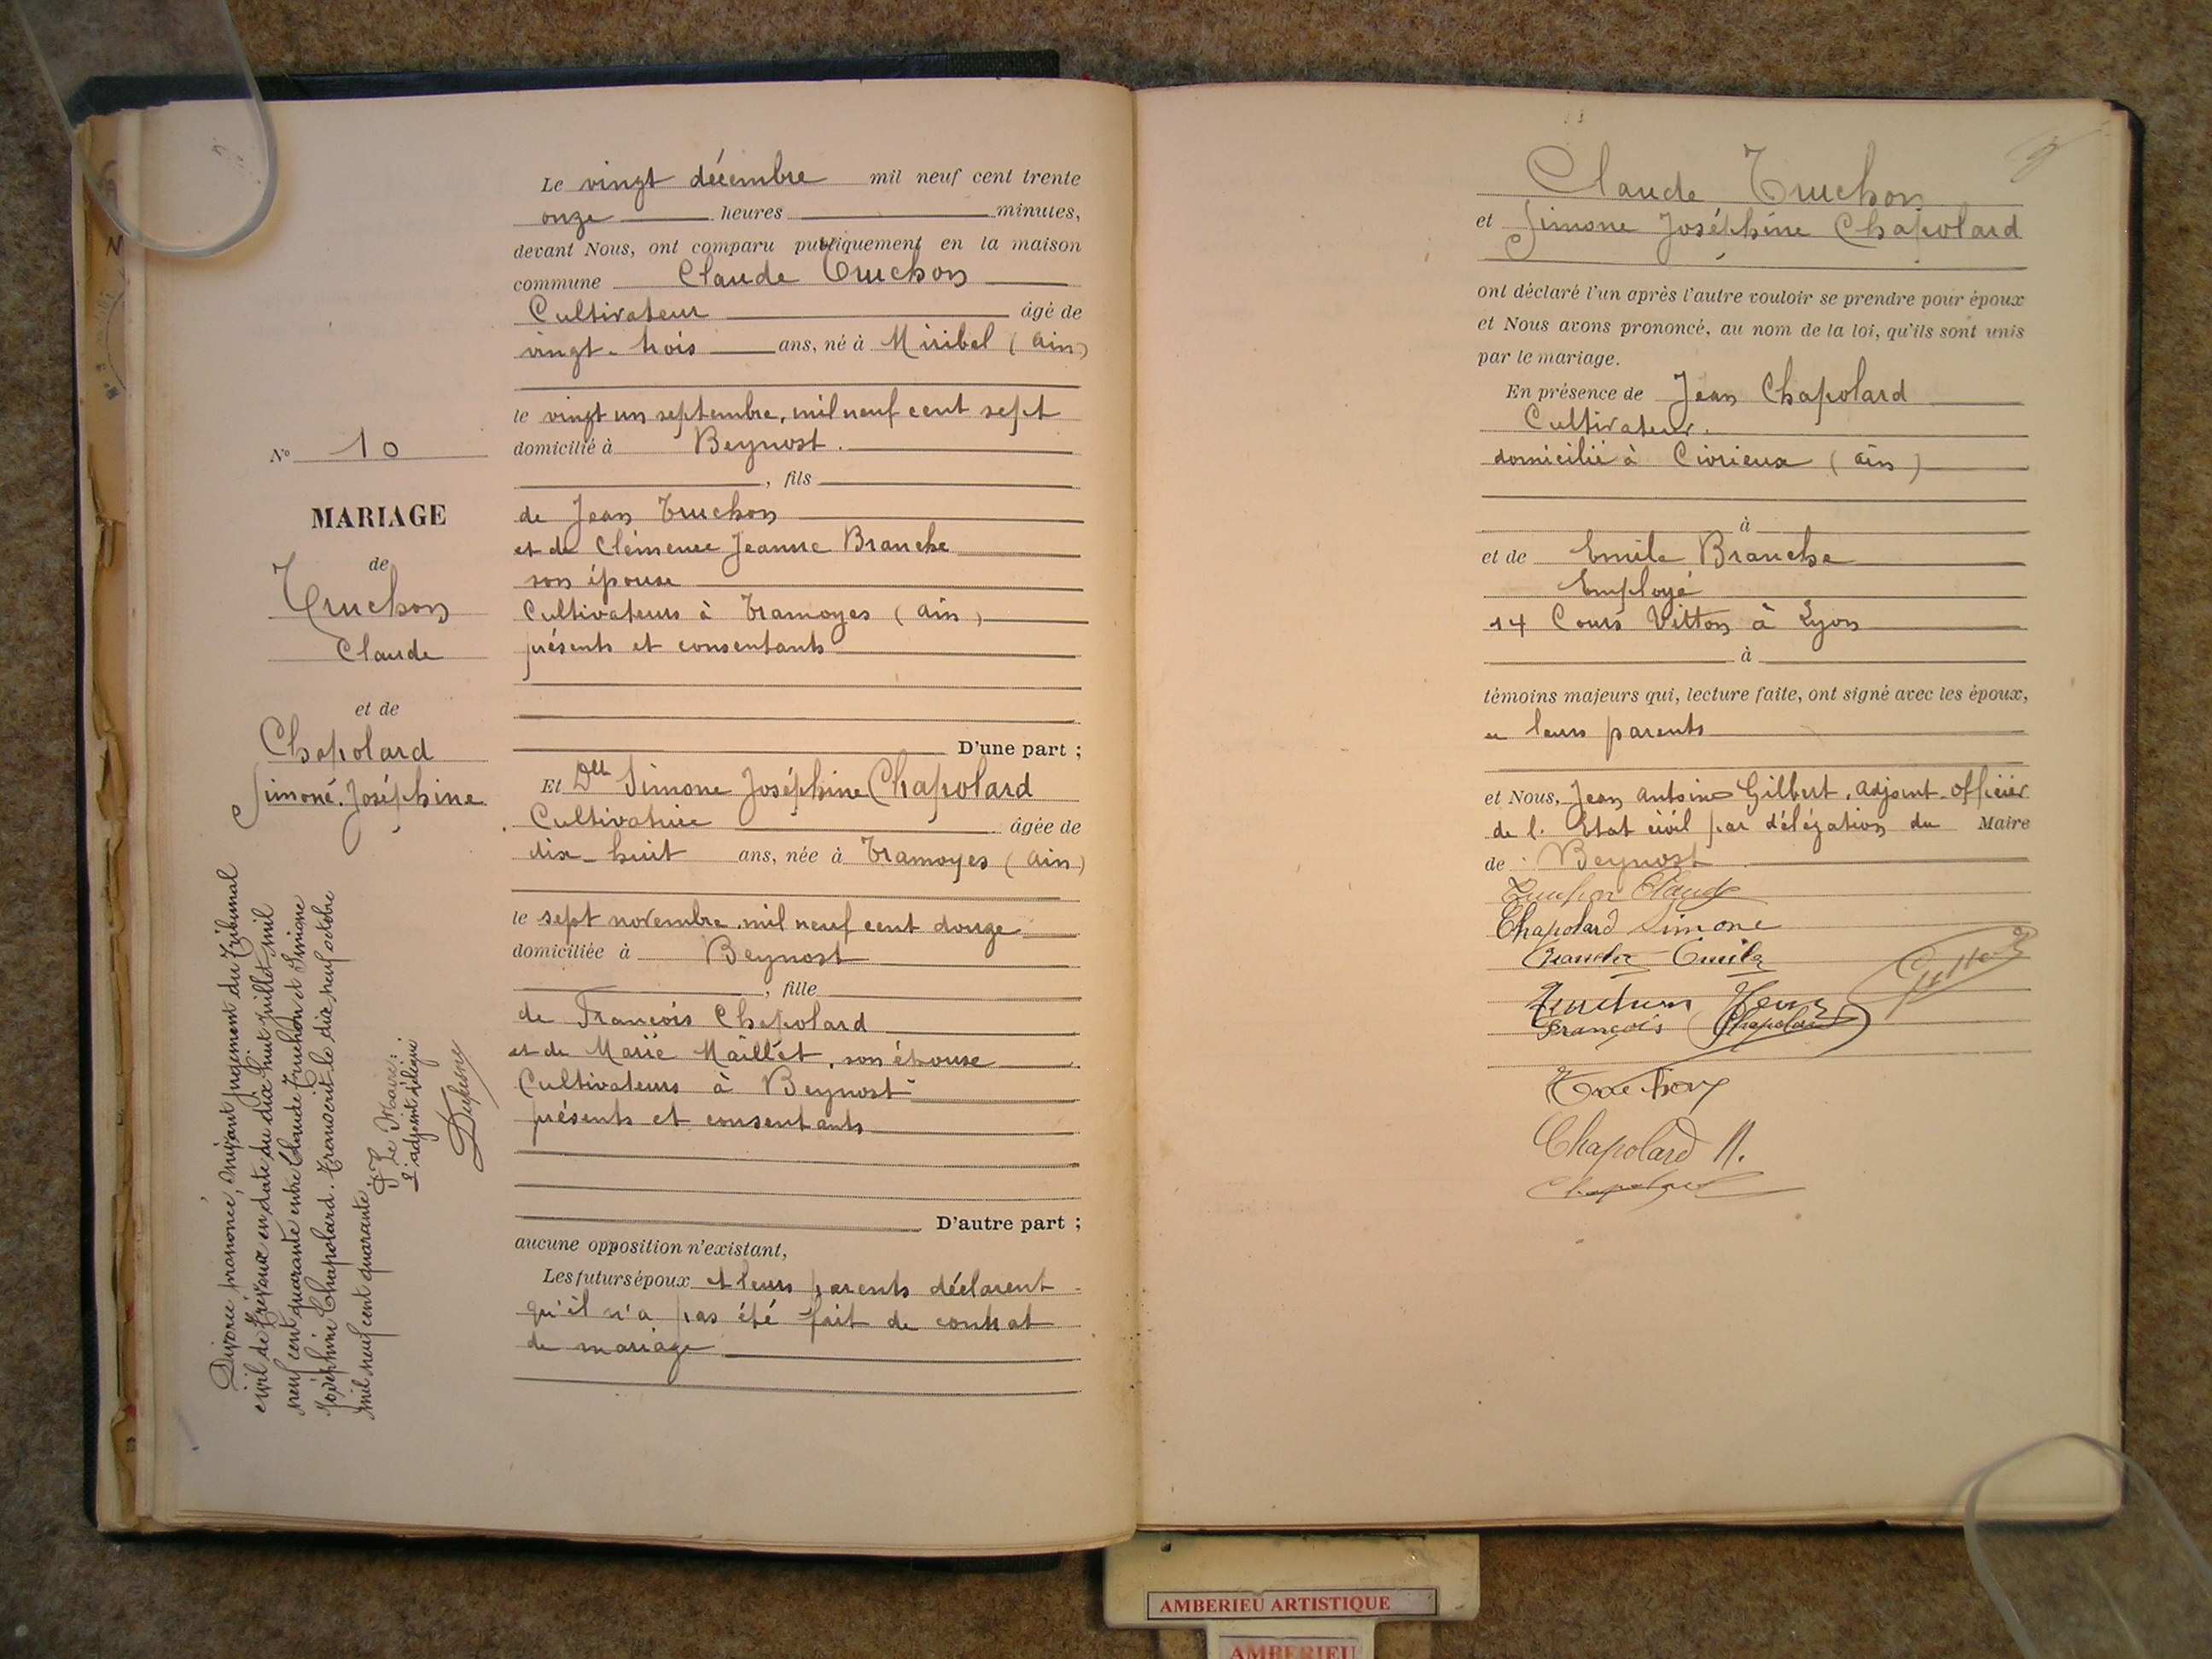 N° 10
MARIAGE
de
Truchon
Claude
et de
Chapolard
Simone Joséphine
Divorce prononcé, suivant jugement du Tribunal
civil de Trévoux en date du dix huit juillet mil
neuf cent quarante entre Claude Truchon et Simone
Joséphine Chapolard. Transcrit le dix neuf octobre
mil neuf cent quarante.
Le Maire:
L'adjoint délégué
Le vingt décembre mil neuf cent trente
onze heures minutes,
devant Nous, ont comparu publiquement en la maison
commune Claude Truchon
Cultivateur âgé de
vingt-trois ans, né à Miribel (Ain)
le vingt un septembre, mil neuf cent sept
domicilié à Beynost.
, fils
de Jean Truchon
et de Clémence Jeanne Branche
son épouse
Cultivateurs à Tramoyes (Ain)
présents et consentants
D'une part ;
Et Dlle Simone Joséphine Chapolard
Cultivatrice âgée de
dix-huit ans, née à Tramoyes (Ain)
le sept novembre, mil neuf cent douze
domiciliée à Beynost
, fille
de François Chapolard
et de Marie Maillet, son épouse
Cultivateurs à Beynost
présents et consentants
D'autre part ;
aucune opposition n'existant,
Les futurs époux et leurs parents déclarent
qu'il n'a pas été fait de contrat
de mariage
Claude Truchon
et Simone Joséphine Chapolard
ont déclaré l'un après l'autre vouloir se prendre pour époux
et Nous avons prononcé, au nom de la loi, qu'ils sont unis
par le mariage.
En présence de Jean Chapolard
Cultivateur.
domicilié à Civrieux (Ain)
à
et de Emile Branche
Employé
14 Cours Vitton à Lyon
à
témoins majeurs qui, lecture faite, ont signé avec les époux,
et leurs parents
et Nous, Jean Antoine Gilbert, adjoint officier
de l'Etat civil par délégation du Maire
de Beynost
Truchon Claude
Chapolard Simone
Branche Emile
Truchon
François Chapolard
Truchon
Chapolard M.
Chapolard
AMBERIEU ARTISTIQUE
AMBERIEU